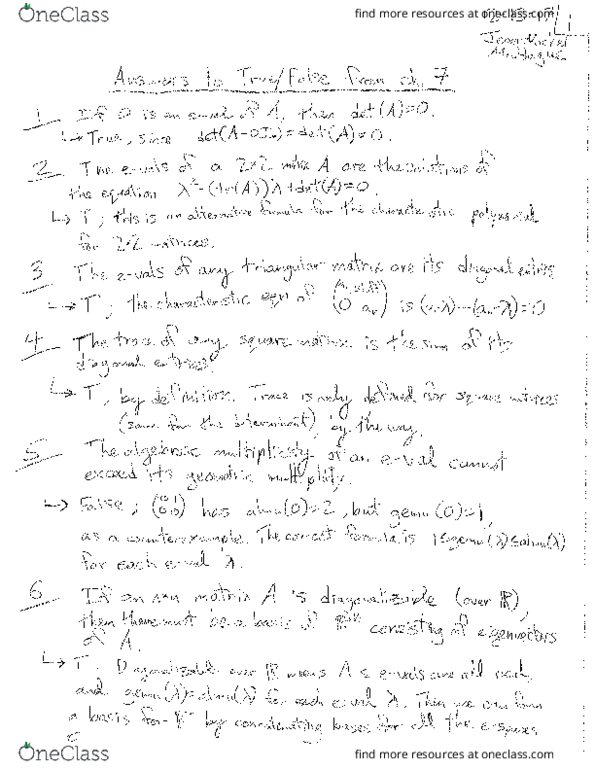 OneClass
find more resources at oneclass.com
Answers to True/False from ch. 7
1 If 0 is an e-val of A, then det(A)=0.
↳ True, since det(A-0Iₙ)=det(A)=0.
2 The e-vals of a 2×2 matrix A are the solutions of
the equation λ²-(tr(A))λ+det(A)=0.
↳ T, this is an alternative formula for the characteristic polynomial
for 2×2 matrices.
3 The e-vals of any triangular matrix are its diagonal entries
↳ T, the characteristic eqn of is =0
4 The trace of any square matrix is the sum of its
diagonal entries.
↳ T, by definition. Trace is only defined for square matrices
(same for the determinant), by the way.
5 The algebraic multiplicity of an e-val cannot
exceed its geometric multiplicity.
↳ False; has almu(0)=2, but gemu(0)=1,
as a counterexample. The correct formula is 1≤gemu(λ)≤almu(λ)
for each e-val λ.
6 If an n×n matrix A is diagonalizable (over ℝ),
then there must be a basis of ℝⁿ consisting of eigenvectors
of A.
↳ T. Diagonalizable over ℝ means A's e-vals are all real,
and gemu(λ)=almu(λ) for each e-val λ. Then you can form
a basis for ℝⁿ by concatenating bases for all the e-spaces
OneClass
find more resources at oneclass.com